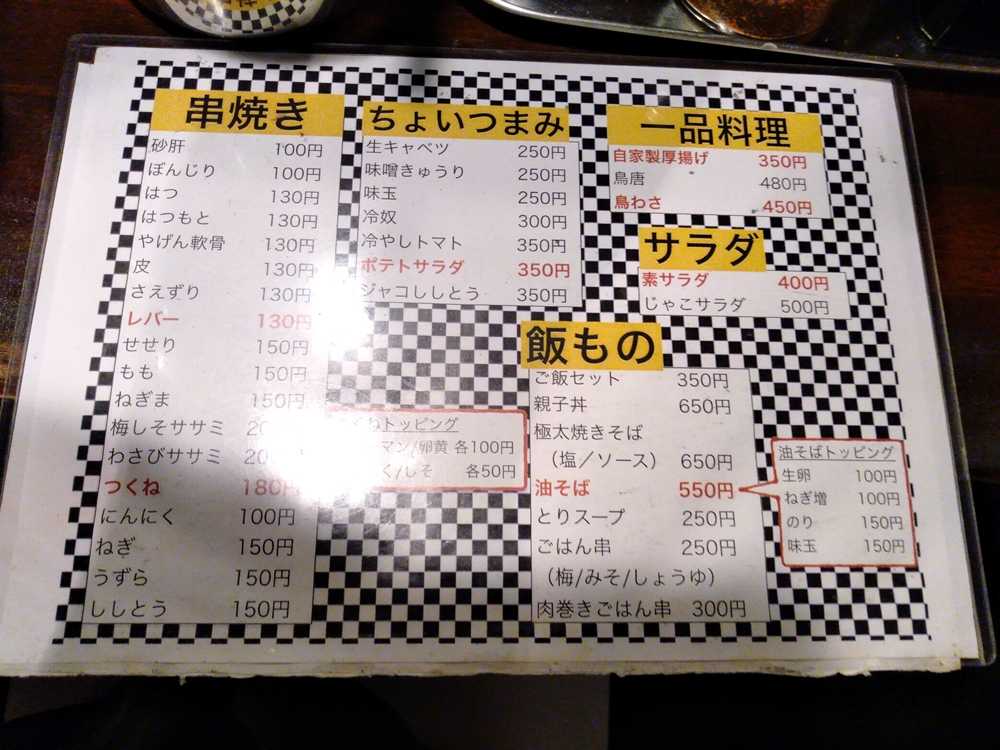 串焼き
砂肝 100円
ぼんじり 100円
はつ 130円
はつもと 130円
やげん軟骨 130円
皮 130円
さえずり 130円
レバー 130円
せせり 150円
もも 150円
ねぎま 150円
梅しそササミ
わさびササミ
つくね 180円
にんにく 100円
ねぎ 150円
うずら 150円
ししとう 150円
ちょいつまみ
生キャベツ 250円
味噌きゅうり 250円
味玉 250円
冷奴 300円
冷やしトマト 350円
ポテトサラダ 350円
ジャコししとう 350円
くねトッピング
マン/卵黄 各100円
く/しそ 各50円
一品料理
自家製厚揚げ 350円
鳥唐 480円
鳥わさ 450円
サラダ
素サラダ 400円
じゃこサラダ 500円
飯もの
ご飯セット 350円
親子丼 650円
極太焼きそば
（塩／ソース） 650円
油そば 550円
とりスープ 250円
ごはん串 250円
（梅/みそ/しょうゆ）
肉巻きごはん串 300円
油そばトッピング
生卵 100円
ねぎ増 100円
のり 150円
味玉 150円